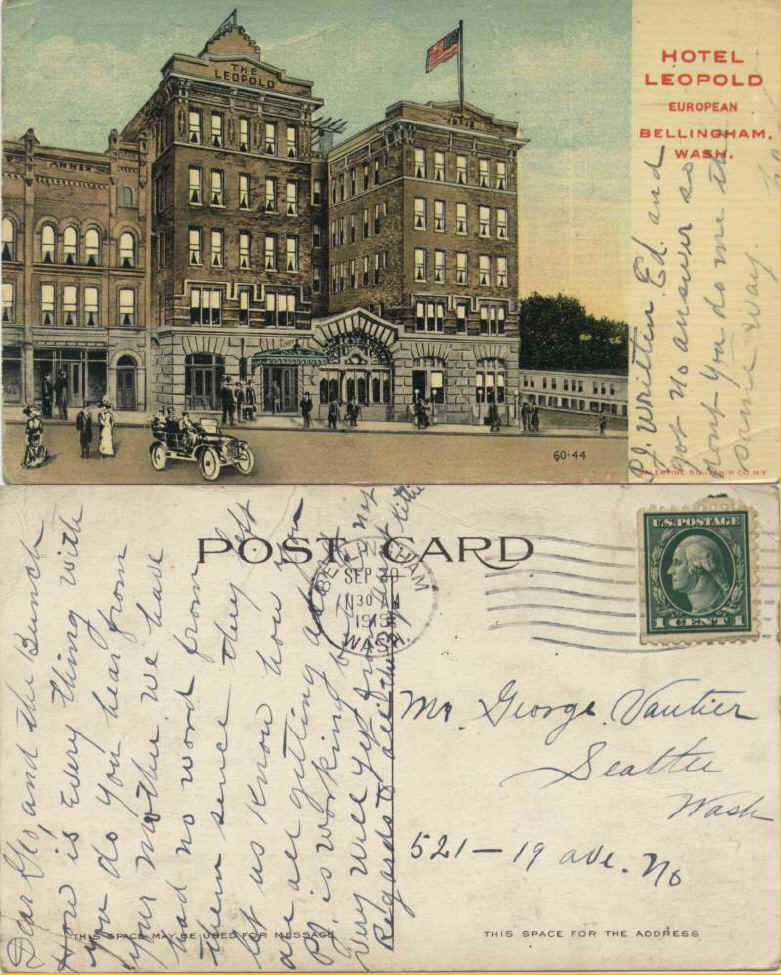 THE
LEOPOLD
ANNEX
HOTEL
LEOPOLD
EUROPEAN
BELLINGHAM,
WASH.
P.J. Written Ed. and
got no answer so
dont you do me the
same way.
60-44
VALENTINE SOUVENIR CO. N.Y.
POST CARD
BELLINGHAM
SEP 20
11 30 AM
WASH.
U.S. POSTAGE
1 CENT 1
Dear Geo, and the Bunch
How is Every thing with
you do you hear from
your Mother. We have
had no word from
them sence they left
let us know how you
are all getting
P.J. is working
very well yet
Regards to all
Mr. George Vautier
Seattle
Wash
521-19 ave. No
THIS SPACE MAY BE USED FOR MESSAGE
THIS SPACE FOR THE ADDRESS